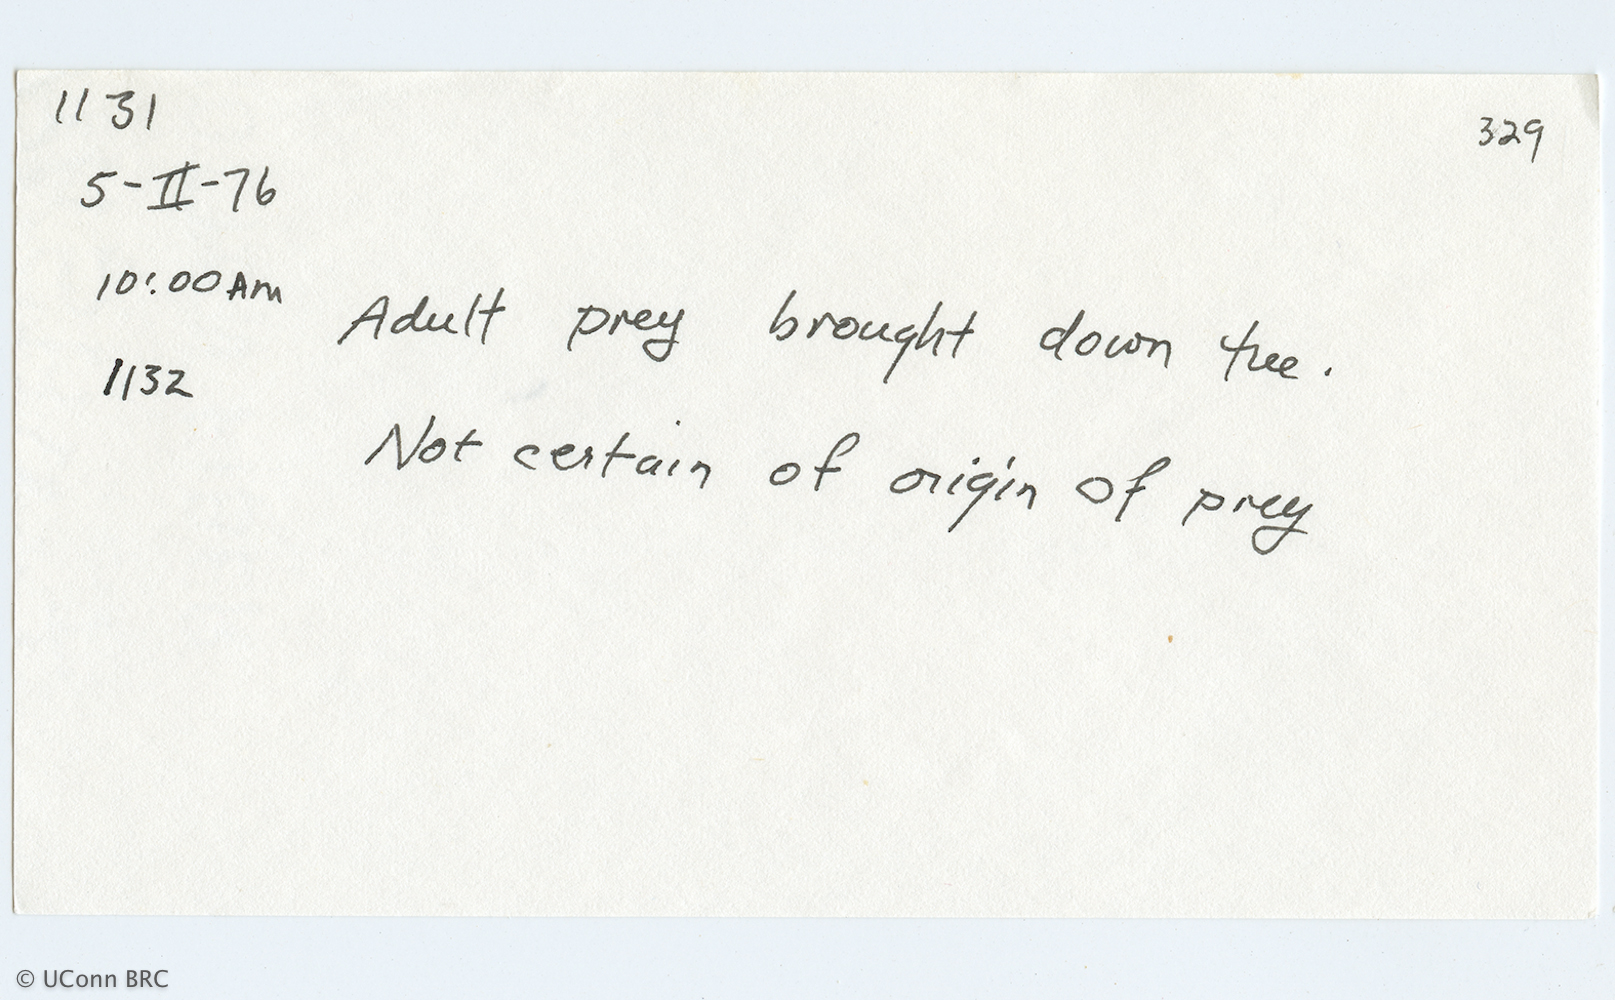 1131
329
5-II-76
10:00 Am
Adult prey brought down tree.
1132
Not certain of origin of prey
© UConn BRC